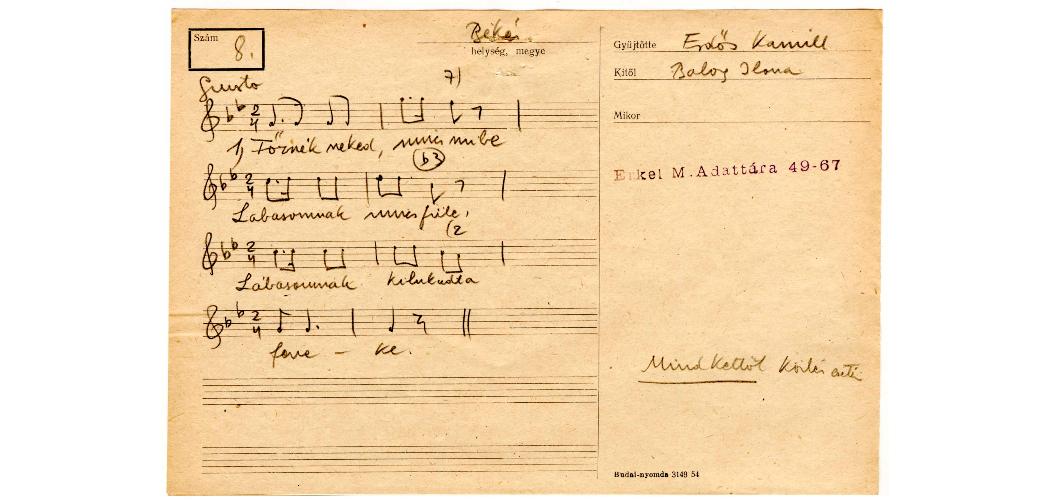 Szám 8.
Békés.
helység, megye
Gyűjtötte Erdős Kamill
Kitől Balog Ilona
Mikor
Giusto
7)
2/4
1) Főznék neked, nincs mibe
b3
2/4
Lábasomnak nincs füle,
(2
2/4
Lábasomnak kilukadta
2/4
fene - ke.
Erkel M. Adattára 49-67
Mind kettőt közlés
Budai-nyomda 3149 54